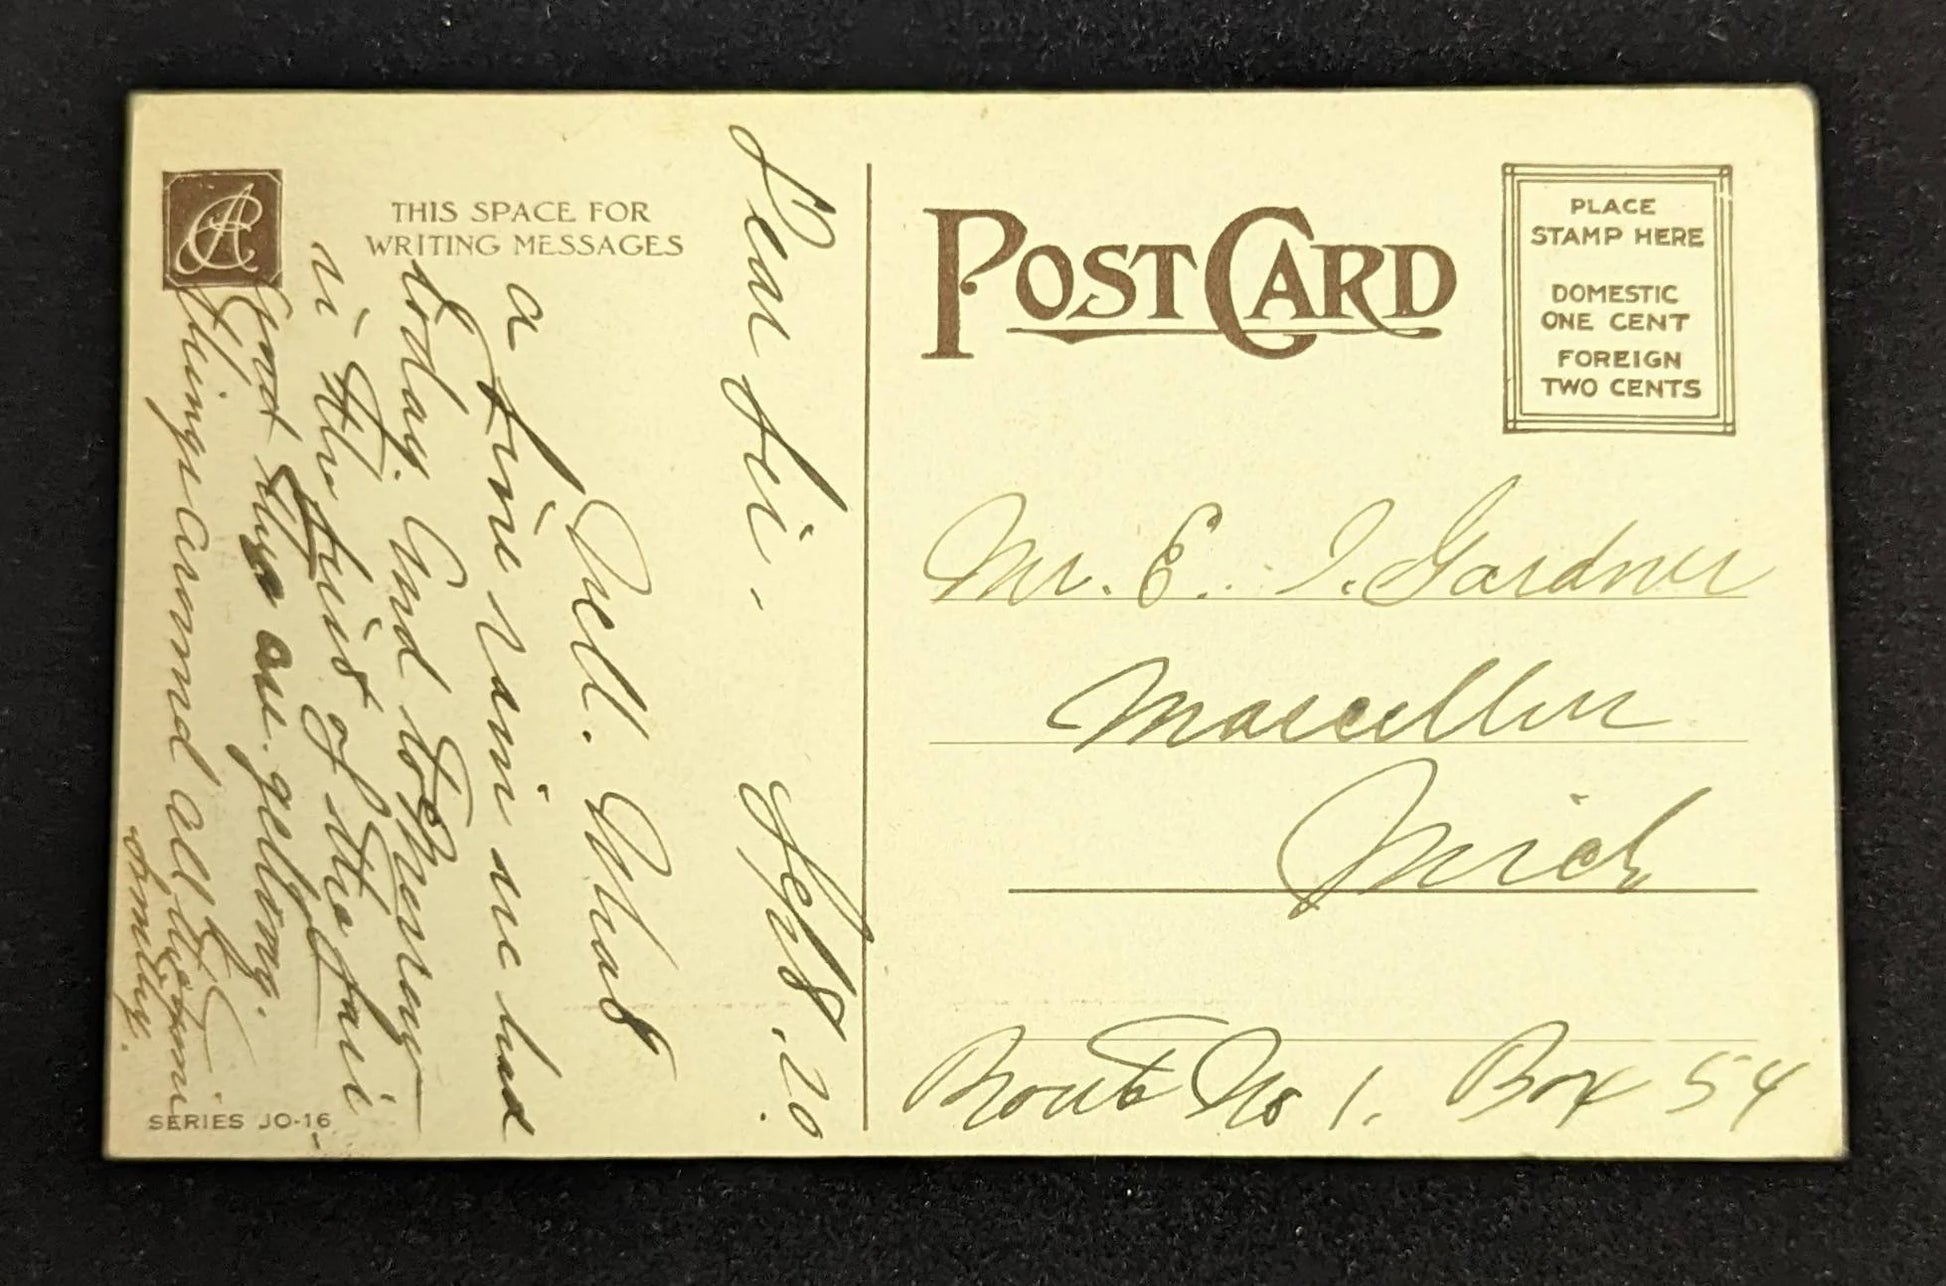 THIS SPACE FOR
WRITING MESSAGES
Dear Sir. Sept. 20.
Well. What
a fine rain we had
today. And to
in the first of the fair
And
things around all
family.
SERIES JO-16
POST CARD
PLACE
STAMP HERE
DOMESTIC
ONE CENT
FOREIGN
TWO CENTS
Mr. E. I. Gardner
Marcellus
Mich
Route No 1. Box 54